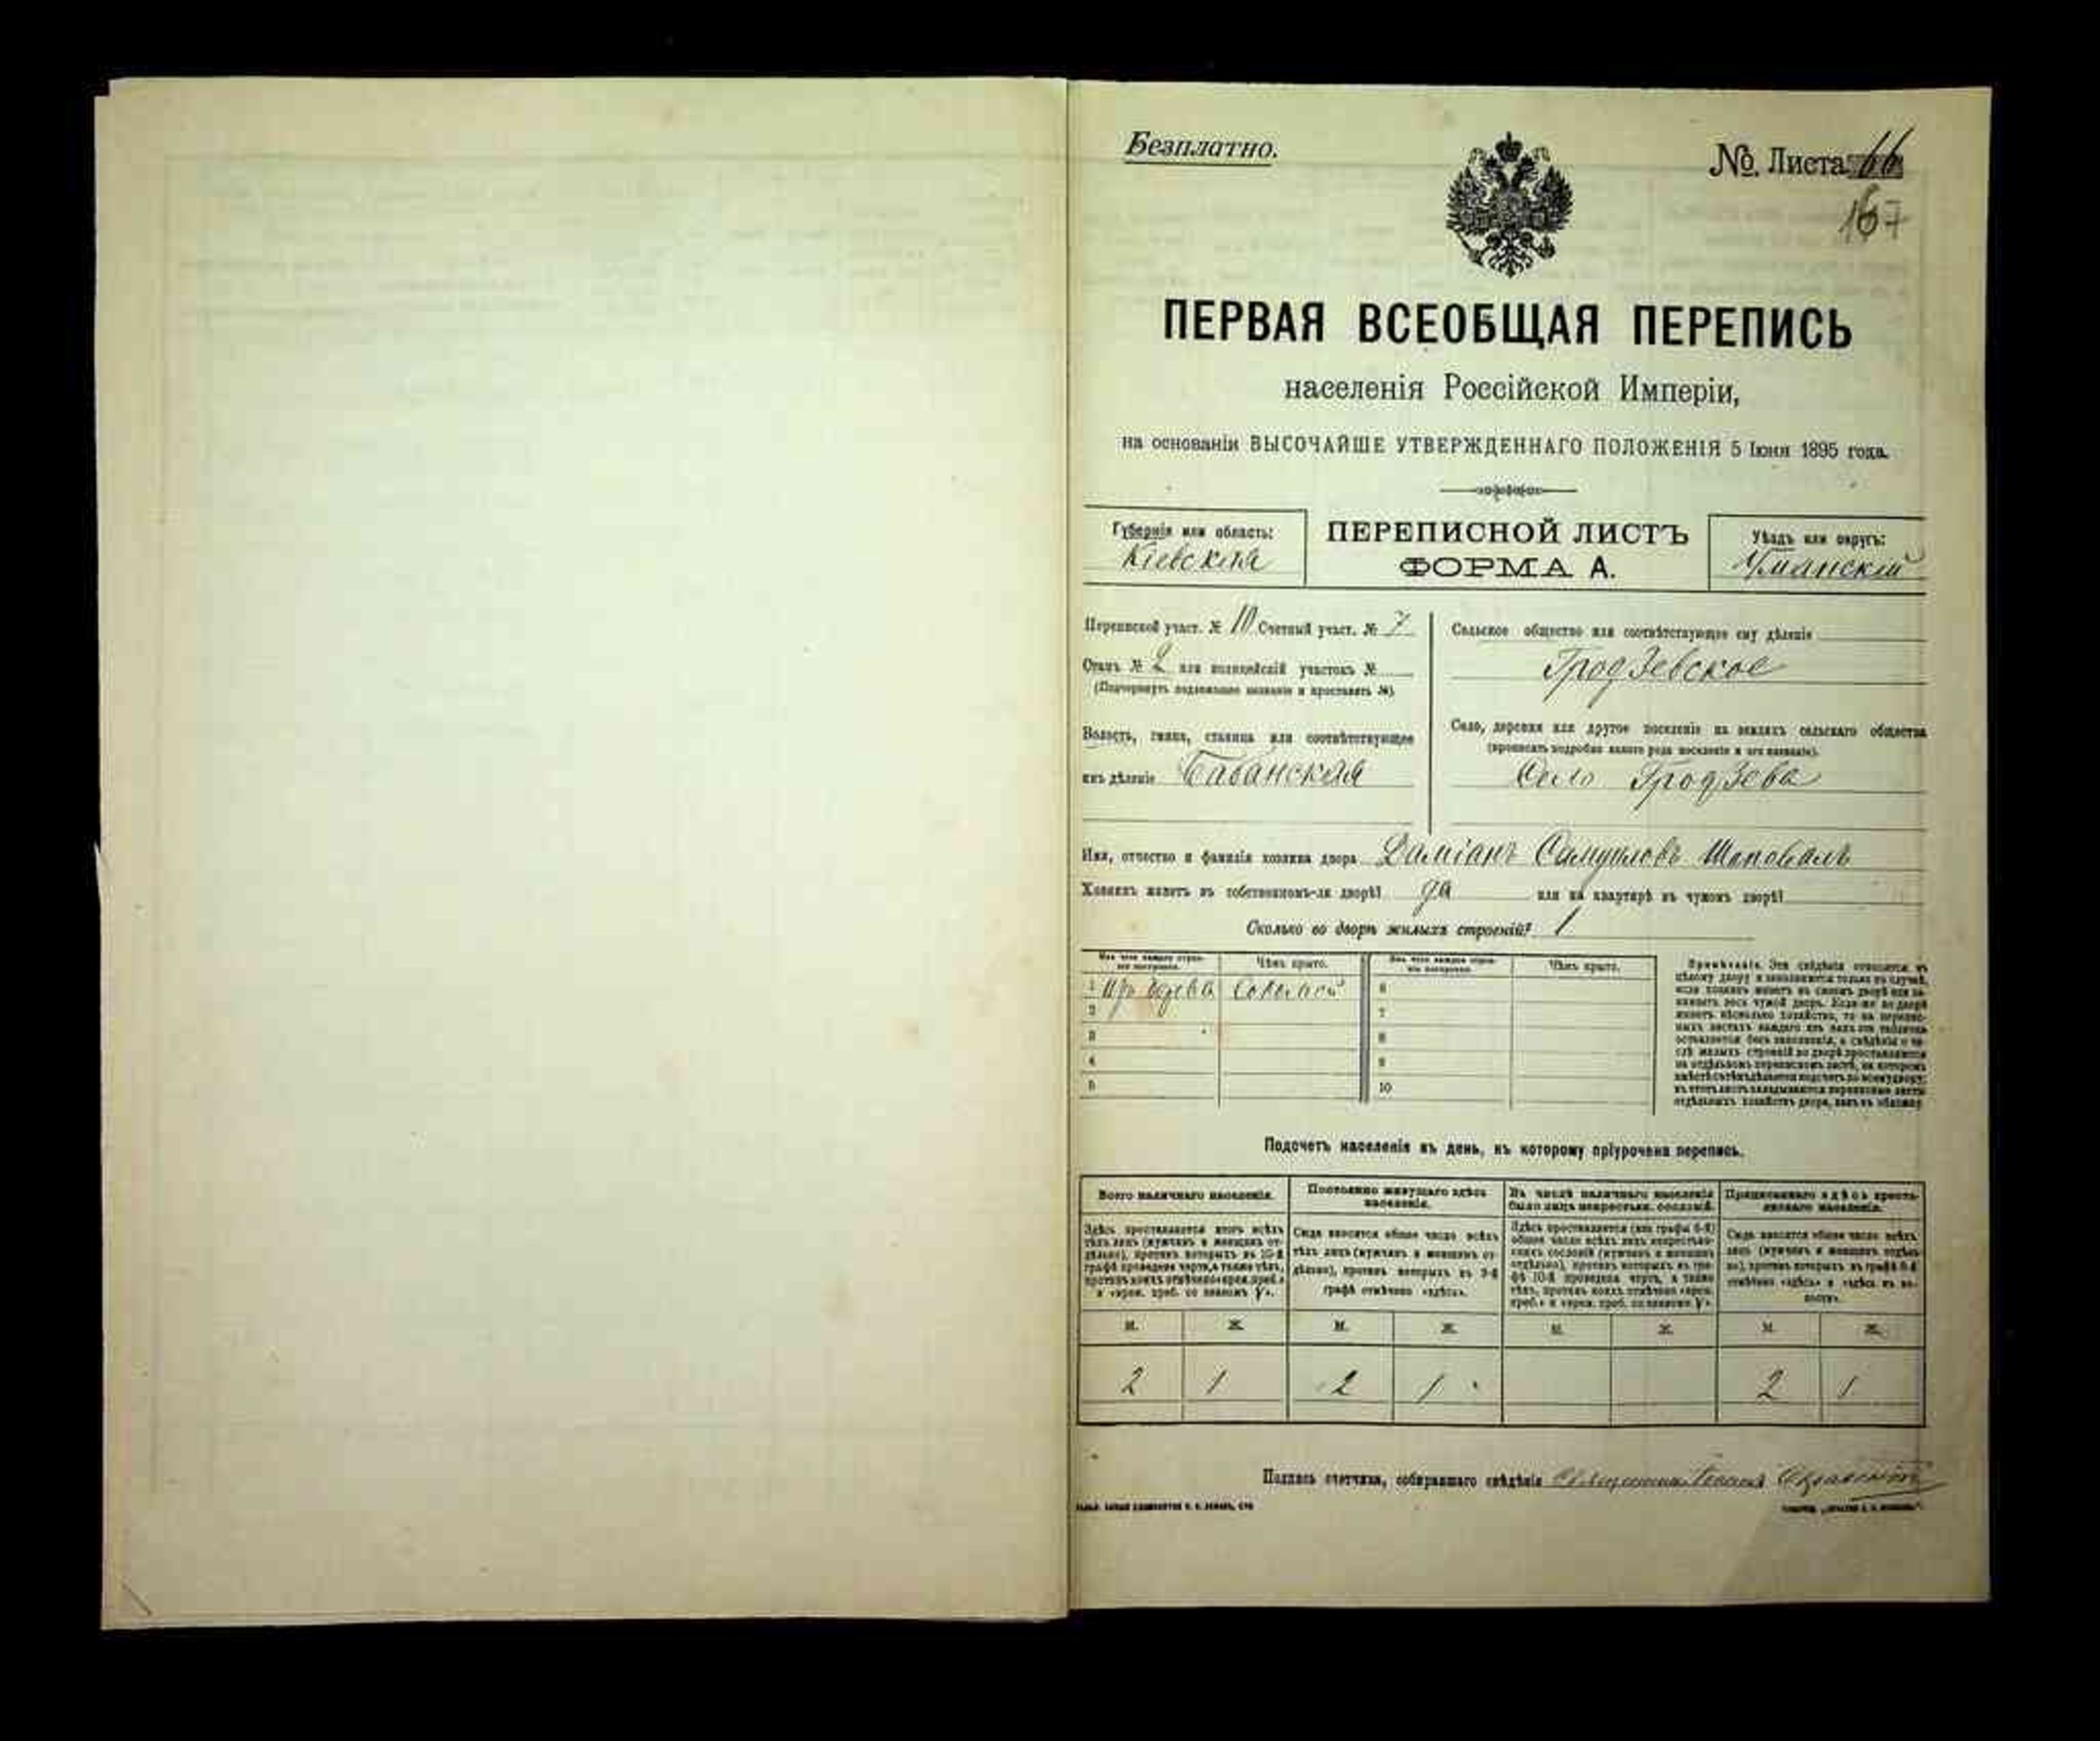 Безплатно.
№. Листа 66
167
ПЕРВАЯ ВСЕОБЩАЯ ПЕРЕПИСЬ
населенія Россійской Имперіи,
на основаніи ВЫСОЧАЙШЕ УТВЕРЖДЕННАГО ПОЛОЖЕНІЯ 5 Іюня 1895 года.
Губернія или область:
Кіевская
ПЕРЕПИСНОЙ ЛИСТЪ
ФОРМА А.
Уѣздъ или округъ:
Уманскій
Переписной участ. № 10 Счетный участ. № 7
Станъ № 2 или полицейскій участокъ №
(Подчеркнуть подлежащее названіе и проставить №).
Волость, гмина, станица или соотвѣтствующее
имъ дѣленіе Бабанская
Сельское общество или соотвѣтствующее ему дѣленіе
Гродзевское
Село, деревня или другое поселеніе на земляхъ сельскаго общества
(прописать подробно какого рода поселеніе и его названіе).
Село Гродзева
Имя, отчество и фамилія хозяина двора Даміанъ Самуиловъ Шаповалъ
Хозяинъ живетъ въ собственномъ-ли дворѣ? да или на квартирѣ въ чужомъ дворѣ?
Сколько во дворѣ жилыхъ строеній? 1
Изъ чего каждое строеніе построено.
Чѣмъ крыто.
Изъ чего каждое строеніе построено.
Чѣмъ крыто.
1 изъ дерева Соломой 6
2 7
3 8
4 9
5 10
Примѣчаніе. Эти свѣдѣнія относятся къ
цѣлому двору и заполняются только въ случаѣ,
если хозяинъ живетъ въ своемъ дворѣ или занимаетъ
весь чужой дворъ. Если же во дворѣ
Подсчетъ населенія въ день, къ которому пріурочена перепись.
Всего наличнаго населенія.
Постоянно живущаго здѣсь
населенія.
Въ числѣ наличнаго населенія
было лицъ некрестьян. сословій.
Приписаннаго здѣсь крестьянскаго
населенія.
Здѣсь проставляется итогъ всѣхъ
тѣхъ лицъ (мужчинъ и женщинъ отдѣльно),
противъ которыхъ въ 10-й
графѣ проведена черта, а также тѣхъ,
противъ коихъ отмѣчено «врем. преб.»
Сюда вносится общее число всѣхъ
тѣхъ лицъ (мужчинъ и женщинъ отдѣльно),
противъ которыхъ въ 9-й
графѣ отмѣчено «здѣсь».
Сюда вносится общее число всѣхъ
лицъ (мужчинъ и женщинъ отдѣльно),
противъ которыхъ въ графѣ 8-й
отмѣчено «здѣсь» и «здѣсь въ волости».
М. Ж. М. Ж. М. Ж. М. Ж.
2 1 2 1 2 1
Подпись счетчика, собиравшаго свѣдѣнія